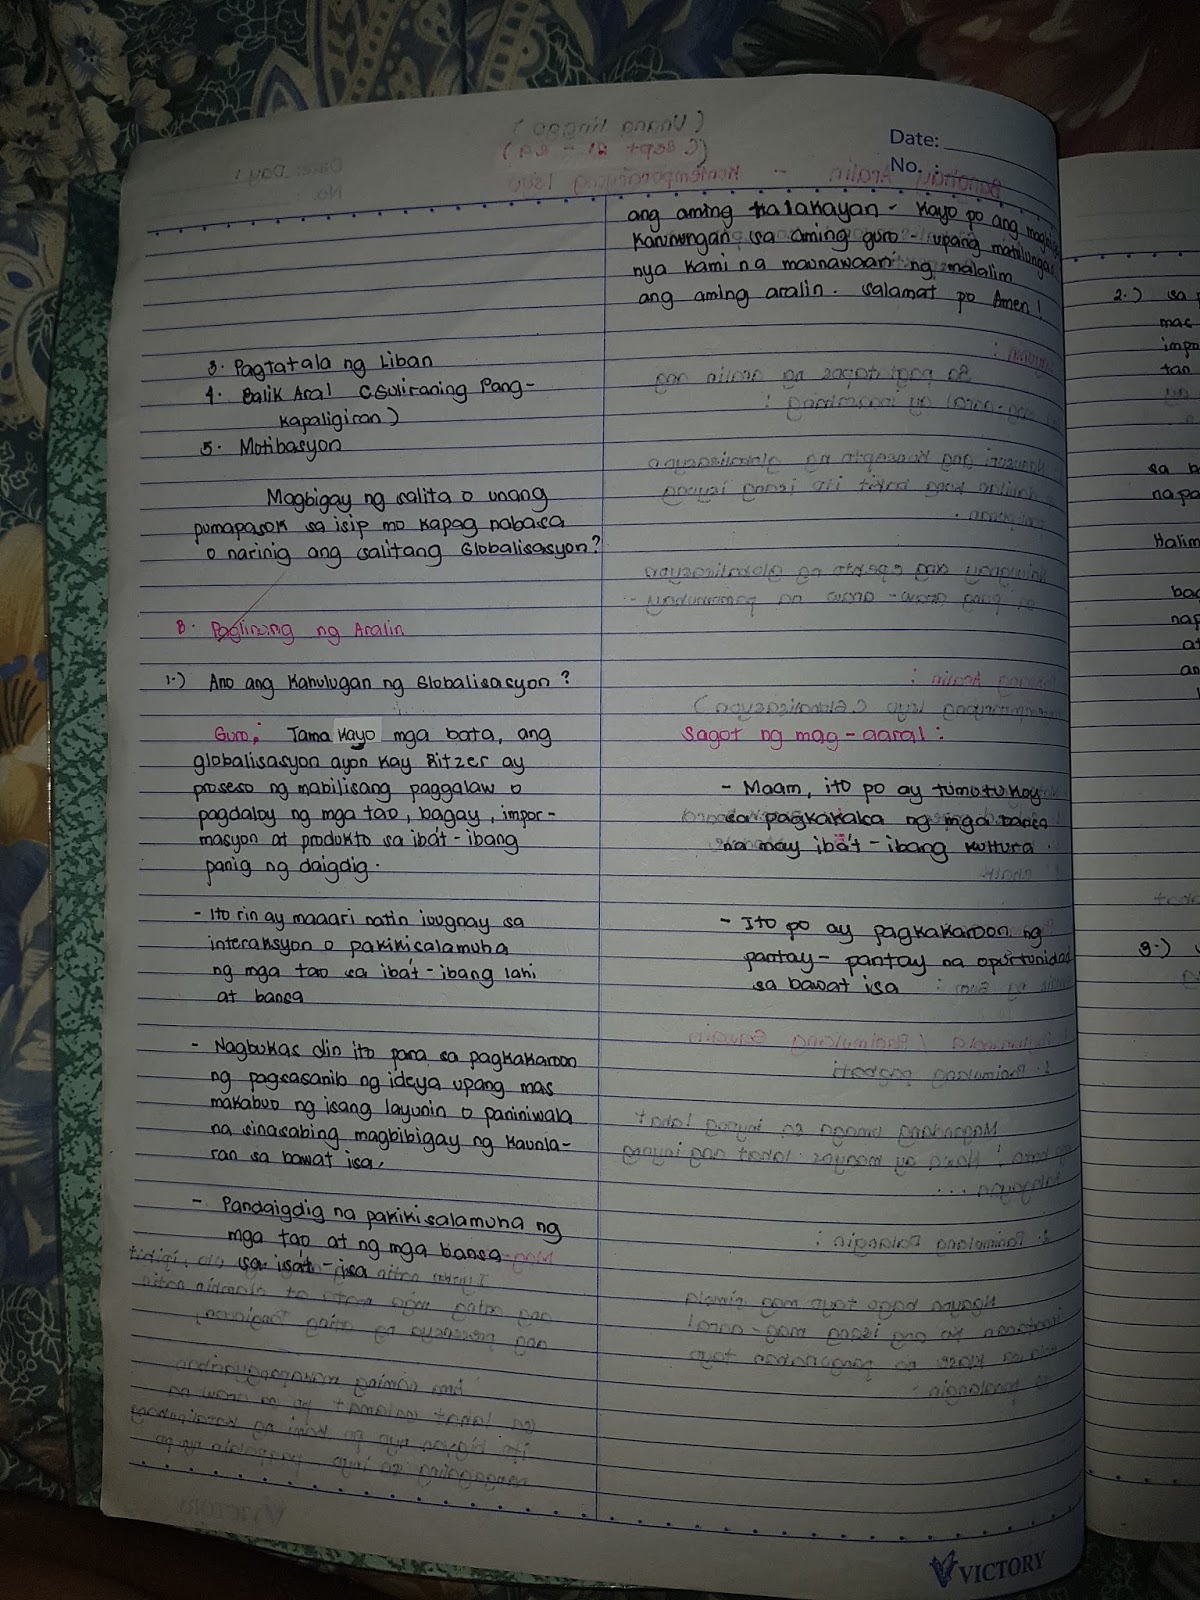 Date:
No.
ang aming talakayan - Kayo po ang
karunungan sa aming guro - upang matulungan
nya kami na maunawaan ng malalim
ang aming aralin. Salamat po Amen!
3. Pagtatala ng Liban
4. Balik Aral (Suliraning Pang-
kapaligiran)
5. Motibasyon
Magbigay ng salita o unang
pumapasok sa isip mo kapag nabasa
o narinig ang salitang Globalisasyon?
B. Paglinang ng Aralin
1.) Ano ang Kahulugan ng Globalisasyon?
Guro: Tama kayo mga bata, ang
globalisasyon ayon kay Ritzer ay
proseso ng mabilisang paggalaw o
pagdaloy ng mga tao, bagay, impor-
masyon at produkto sa ibát-ibang
panig ng daigdig.
- Ito rin ay maaari natin iuugnay sa
interaksyon o pakikisalamuha
ng mga tao sa ibát-ibang lahi
at bansa
- Nagbukas din ito para sa pagkakaroon
ng pagsasanib ng ideya upang mas
makabuo ng isang layunin o paniniwala
na sinasabing magbibigay ng kaunla-
ran sa bawat isa.
- Pandaigdig na pakikisalamuha ng
mga tao at ng mga bansa
sa isat-isa
Sagot ng mag-aaral:
- Maam, ito po ay tumutukoy
sa pagkakaisa ng mga bansa
na may ibát-ibang kultura.
- Ito po ay pagkakaroon ng
pantay-pantay na oportunidad
sa bawat isa
VICTORY
2.) sa
mas
impo
tan
sa b
na pa
Halim
bag
nap
at
an
3.)